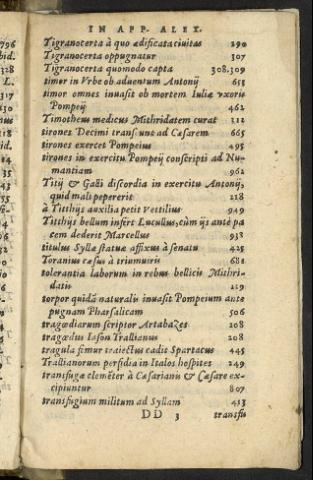 IN APP. ALEX.
Tigranocerta à quo ædificata ciuitas 290
Tigranocerta oppugnatur 307
Tigranocerta quomodo capta 308.309
timor in Vrbe ob aduentum Antonij 655
timor omnes inuasit ob mortem Iuliæ vxoris
Pompeij 462
Timotheus medicus Mithridatem curat 312
tirones Decimi transeunt ad Cæsarem 665
tirones exercet Pompeius 495
tirones in exercitu Pompeij conscripti ad Nu-
mantiam 962
Titij & discordia in exercitu Antonij,
quid mali pepererit 218
à Titthijs auxilia petit Vettilius 949
Titthijs bellum infert Lucullus, cùm ijs ante pa
cem dederit Marcellus 938
titulus Syllæ statuæ affixus à senatu 425
Toranius cæsus à triumuiris 681
tolerantia laborum in rebus bellicis Mithri-
datis
torpor quidã naturalis inuasit Pompeium ante
pugnam Pharsalicam 506
tragœdiarum scriptor Artabazes 208
tragœdus Iason Trallianus 208
tragula femur traiectus cadit Spartacus 445
Trallianorum perfidia in Italos hospites 249
transfugæ à Cæsarianis & Cæsare ex-
cipiuntur 807
transfugium militum ad Syllam 413
DD 3 transfu
796
bid.
328
L.
317
430